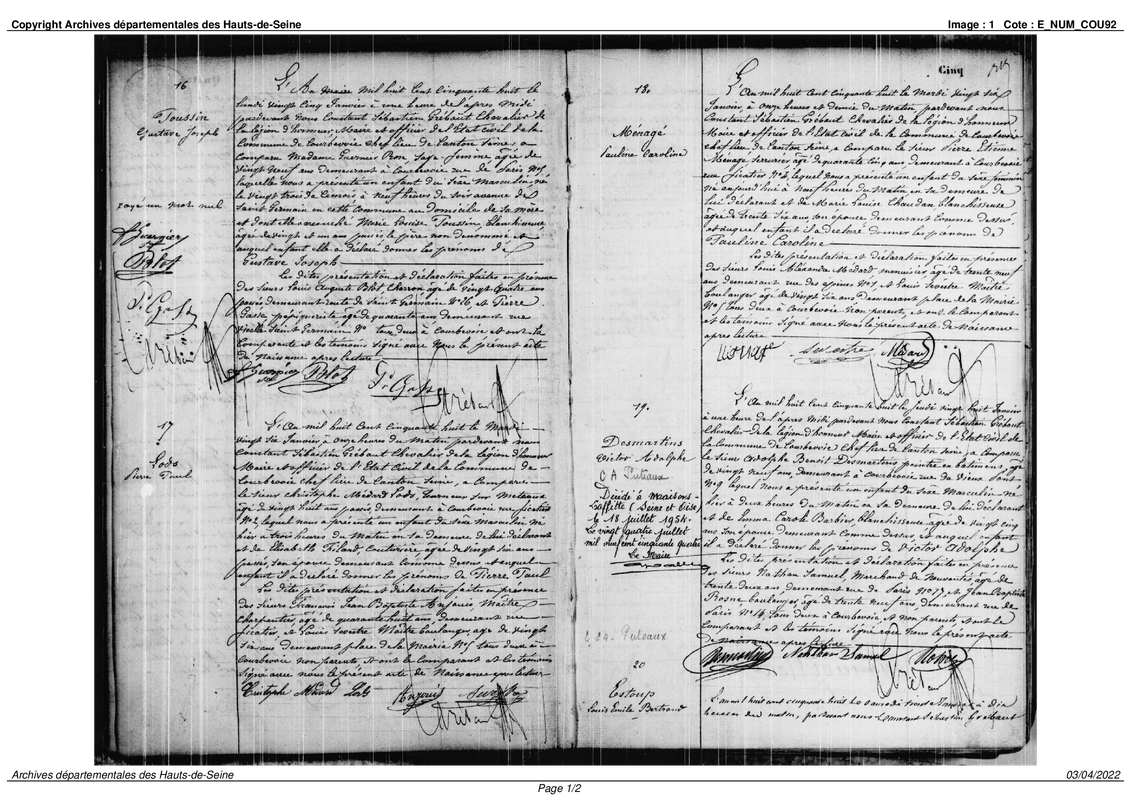 Copyright Archives départementales des Hauts-de-Seine
Image : 1 Cote : E_NUM_COU92
16
Toussin
Gustave Joseph
rayé un mot nul
L'An maire mil huit cent cinquante huit le
lundi vingt cinq Janvier à une heure de l'apres Midi
pardevant Nous Constant Sébastien Grébaut Chevalier de
la légion d'honneur, Maire et officier de l'Etat Civil de la
Commune de Courbevoie Chef lieu de Canton Seine, a
Comparu Madame Guernier Sage femme agée de
vingt neuf ans demeurant à Courbevoie rue de Paris
laquelle nous a présenté un enfant du Sexe Masculin, né
le vingt trois de ce mois à neuf heures du soir avenue de
Saint Germain en cette Commune au domicile de sa mère
et dont elle accouchée Marie Louise Toussin, blanchisseuse
agée de vingt et un ans passés le père non denommé et
auquel enfant elle a déclaré donner les prénoms de
Gustave Joseph
Les dites présentation et déclaration faites en présence
des sieurs Louis Auguste Blot Charon agé de vingt quatre ans
passés demeurant route de Saint Germain N° 16 et Pierre
pépinieriste agé de quarante ans demeurant rue
vieille Saint Germain N° tous deux à Courbevoie et ont la
Comparante et les témoins signé avec Nous le présent acte
de Naissance apres lecture
17
Lods
Pierre Paul
L'An mil huit Cent Cinquante huit le Mardi
vingt six Janvier à onze heures du Matin pardevant nous
Constant Sébastien Grébaut Chevalier de la légion d'honneur
Maire et officier de l'Etat Civil de la Commune de
Courbevoie chef lieu de Canton Seine, a Comparu
le sieur Christophe Médard Lods, tourneur sur Metaux
agé de vingt huit ans passés demeurant à Courbevoie rue
N° 2, lequel nous a présenté un enfant du sexe Masculin, né
hier à trois heures du Matin en sa demeure de lui déclarant
et de Elisabeth Couturière agée de vingt six ans
passés, son epouse demeurant comme dessus et auquel
enfant il a déclaré donner les prénoms de Pierre Paul
Les dites présentation et déclaration faites en présence
des sieurs François Jean Baptiste Maître
Charpentier, agé de quarante huit ans demeurant rue
et Louis Sevestre Maître boulanger, age de vingt
six ans demeurant place de la Mairie N° 5 tous deux à
Courbevoie Non parents et ont le Comparant et les témoins
signé avec nous le présent acte de Naissance apres lecture
Christophe Médard Lods
Cinq
18.
Ménagé
Pauline Caroline
L'An mil huit Cent Cinquante huit le Mardi vingt six
Janvier, à onze heures et demie du Matin, pardevant nous
Constant Sébastien Grébaut Chevalier de la légion d'honneur
Maire et officier de l'Etat Civil de la Commune de Courbevoie
chef lieu de Canton Seine a Comparu le sieur Pierre Etienne
Ménagé Serrurier agé de quarante cinq ans, demeurant à Courbevoie
lequel Nous a présenté un enfant du sexe féminin
né aujourd'hui à Neuf heures du Matin en sa demeure de
lui déclarant et de Marie Louise Blanchisseuse
agée de trente six ans, son épouse demeurant Comme dessus,
et auquel enfant il a déclaré donner les prénoms de
Pauline Caroline
Les dites présentation et déclaration faites en présence
des sieurs Louis Alexandre Médard menuisier, agé de trente neuf
ans demeurant rue des épines N° 1 et Louis Sevestre Maître
boulanger agé de vingt six ans demeurant place de la Mairie
N° 5 tous deux à Courbevoie Non parents, et ont le Comparant
et les témoins Signé avec Nous le présent acte de Naissance
apres lecture
Sevestre
Médard
19.
Desmartins
Victor Adolphe
C A Puteaux
Décédé à Maisons-
Laffitte (Seine et Oise)
le 18 juillet 1954.
Le vingt quatre juillet
mil neuf cent cinquante quatre
Le Maire
L'An mil huit Cent Cinquante huit le Jeudi vingt huit Janvier
à une heure de l'apres Midi pardevant nous Constant Sébastien Grébaut
Chevalier de la légion d'honneur Maire et officier de l'Etat Civil de
la Commune de Courbevoie Chef lieu de Canton Seine, a Comparu
le sieur Adolphe Benoit Desmartins peintre en batiment, agé
de vingt neuf ans, demeurant à Courbevoie rue du Vieux Pont
N° 9 lequel nous a présenté un enfant du sexe Masculin né
hier à deux heures du Matin en sa demeure de lui déclarant
et de Emma Carole Barbier blanchisseuse agée de vingt cinq
ans son épouse demeurant Comme dessus et auquel enfant
il a déclaré donner les prénoms de Victor Adolphe
Les dites présentation et déclaration faites en présence
des sieurs Nathan Samuel, Marchand de Nouveautés agé de
trente deux ans, demeurant rue de Paris N° 17 et Jean Baptiste
boulanger, agé de trente neuf ans demeurant rue de
Paris N° 14, tous deux à Courbevoie, et Non parents et ont le
Comparant et les témoins Signé avec Nous le présent acte
de Naissance apres lecture
Desmartins
Nathan Samuel
C A. Puteaux
20
Estoup
Louis Emile Bertrand
L'an mil huit cent cinquante huit le samedi trente Janvier à dix
heures du matin, pardevant nous Constant Sébastien Grébaut
Archives départementales des Hauts-de-Seine
03/04/2022
Page 1/2